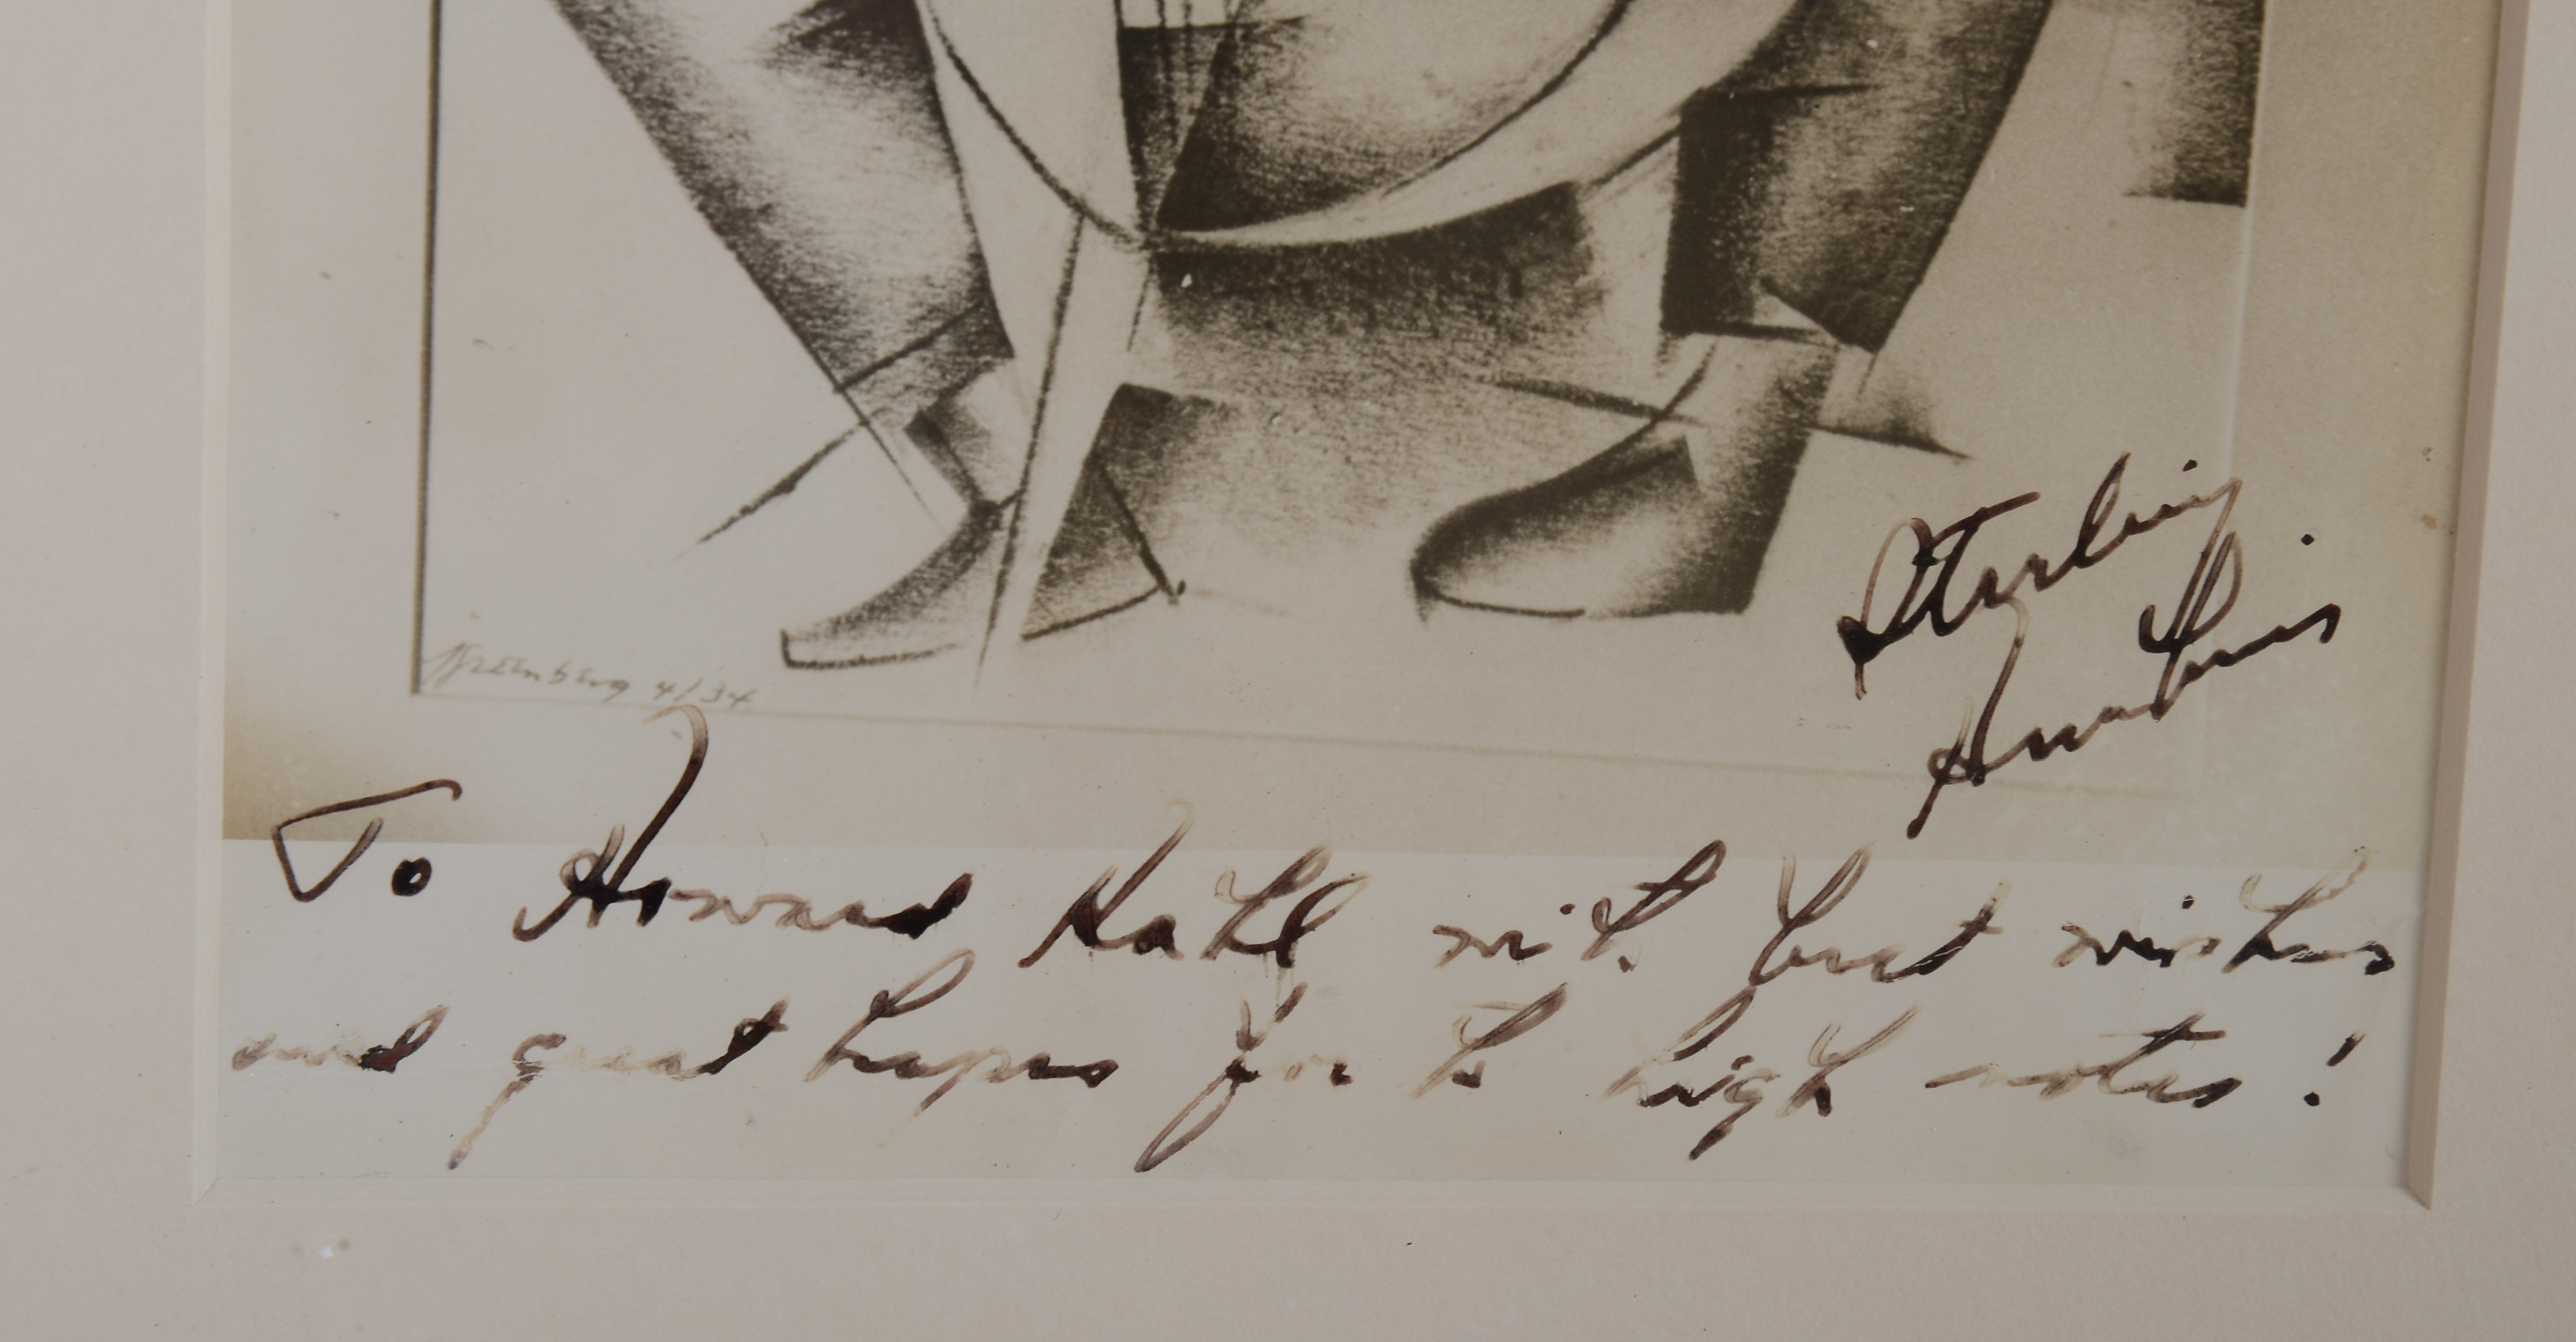 4/34
Sterling
Hunkins
To Howard Kahl with best wishes
and great hopes for the high notes!